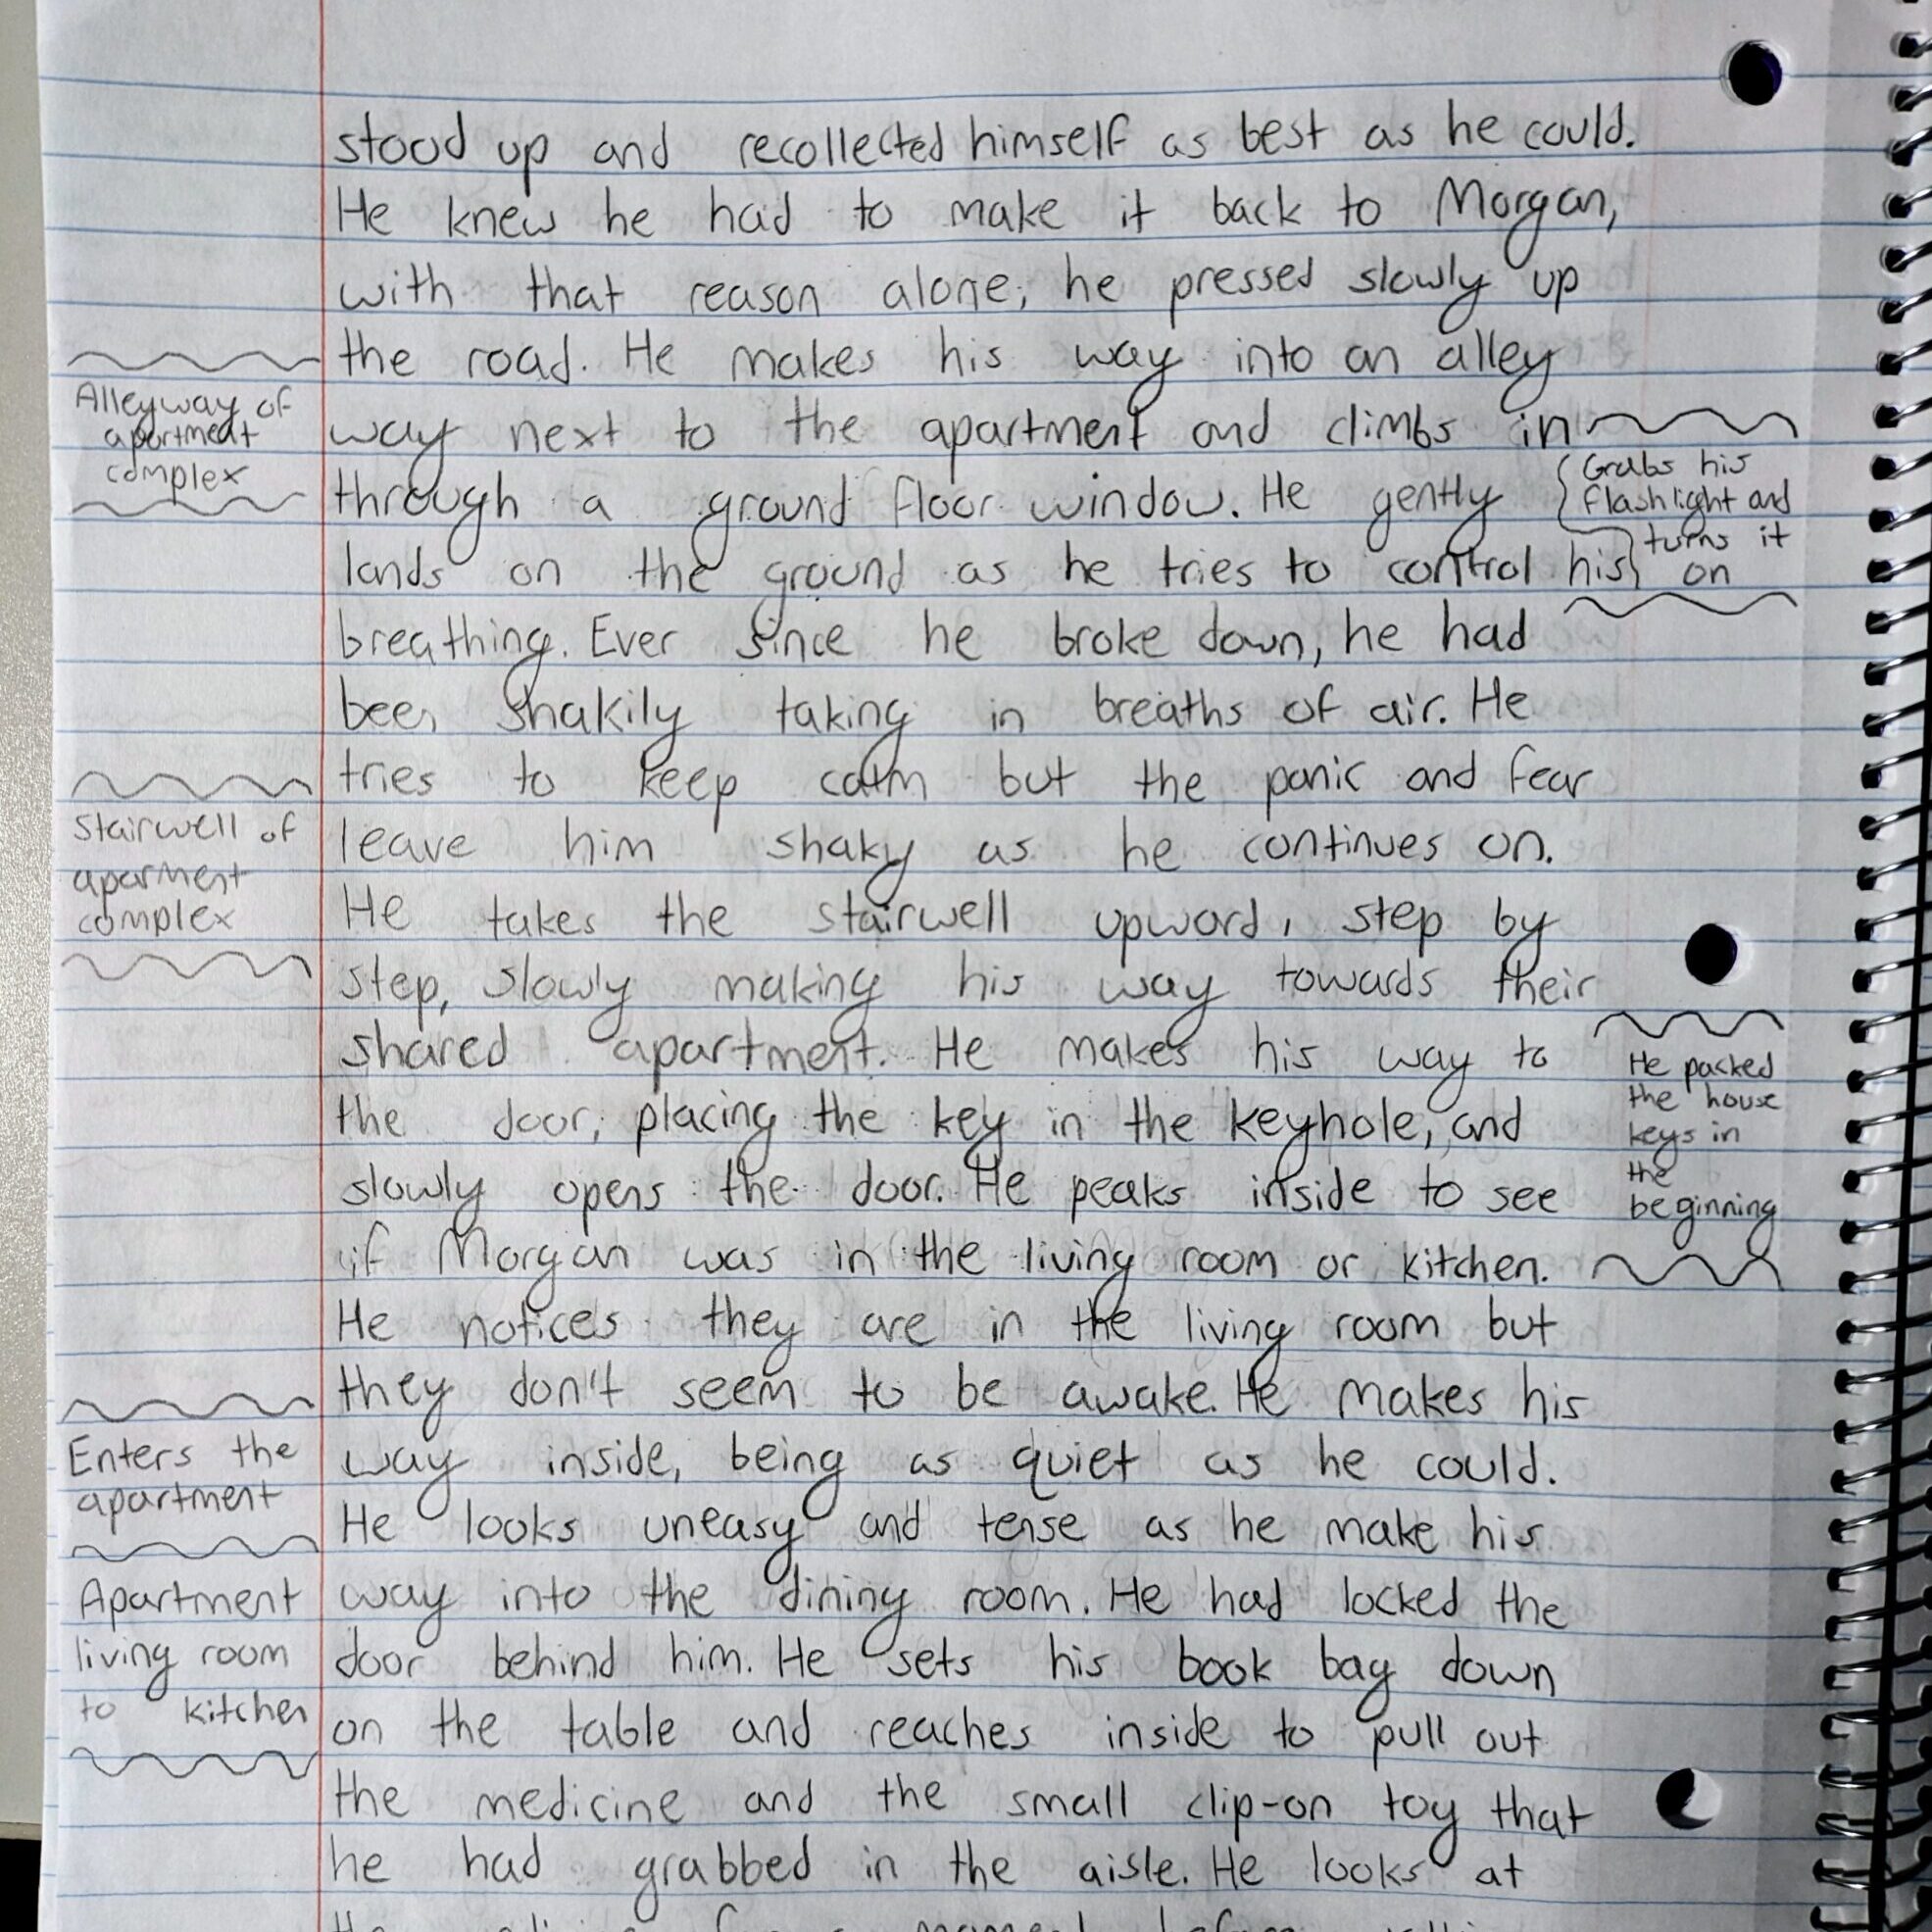 stood up and recollected himself as best as he could.
He knew he had to make it back to Morgan,
with that reason alone, he pressed slowly up
the road. He makes his way into an alley
Alleyway of
apartment
complex
way next to the apartment and climbs in
through a ground floor window. He gently
Grabs his
flashlight and
turns it
on
lands on the ground as he tries to control his
breathing. Ever since he broke down, he had
been shakily taking in breaths of air. He
tries to keep calm but the panic and fear
Stairwell of
aparment
complex
leave him shaky as he continues on.
He takes the stairwell upward, step by
step, slowly making his way towards their
shared apartment. He makes his way to
He packed
the house
keys in
the
beginning
the door, placing the key in the keyhole, and
slowly opens the door. He peaks inside to see
if Morgan was in the living room or kitchen.
He notices they are in the living room but
they don't seem to be awake. He makes his
Enters the
apartment
way inside, being as quiet as he could.
He looks uneasy and tense as he make his
Apartment
living room
to kitchen
way into the dining room. He had locked the
door behind him. He sets his book bag down
on the table and reaches inside to pull out
the medicine and the small clip-on toy that
he had grabbed in the aisle. He looks at